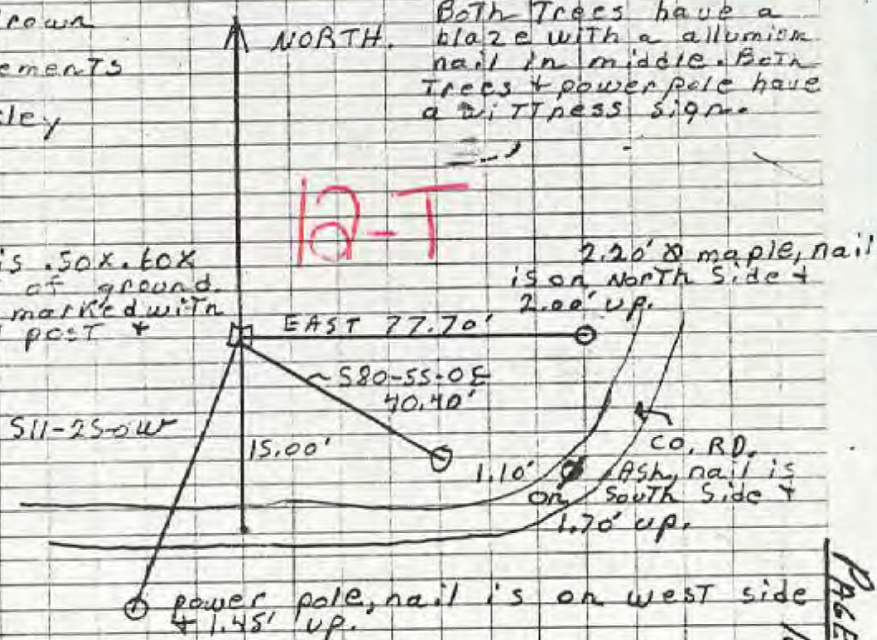 NORTH.
Both Trees have a
blaze with a allumion
nail in middle. Both
Trees + power pole have
a wiTTness sign.
ements
ley
12-T
is .50x.60x
of ground.
marked with
post +
2.20' ⌀ maple, nail
is on North Side +
2.00' up.
EAST 77.70'
S80-55-0E
70.40'
S11-25-0W
15.00'
CO. RD.
1.10' ⌀ ASh, nail is
on South Side +
1.70' up.
power pole, nail is on west side
+ 1.45' up.
PAGE